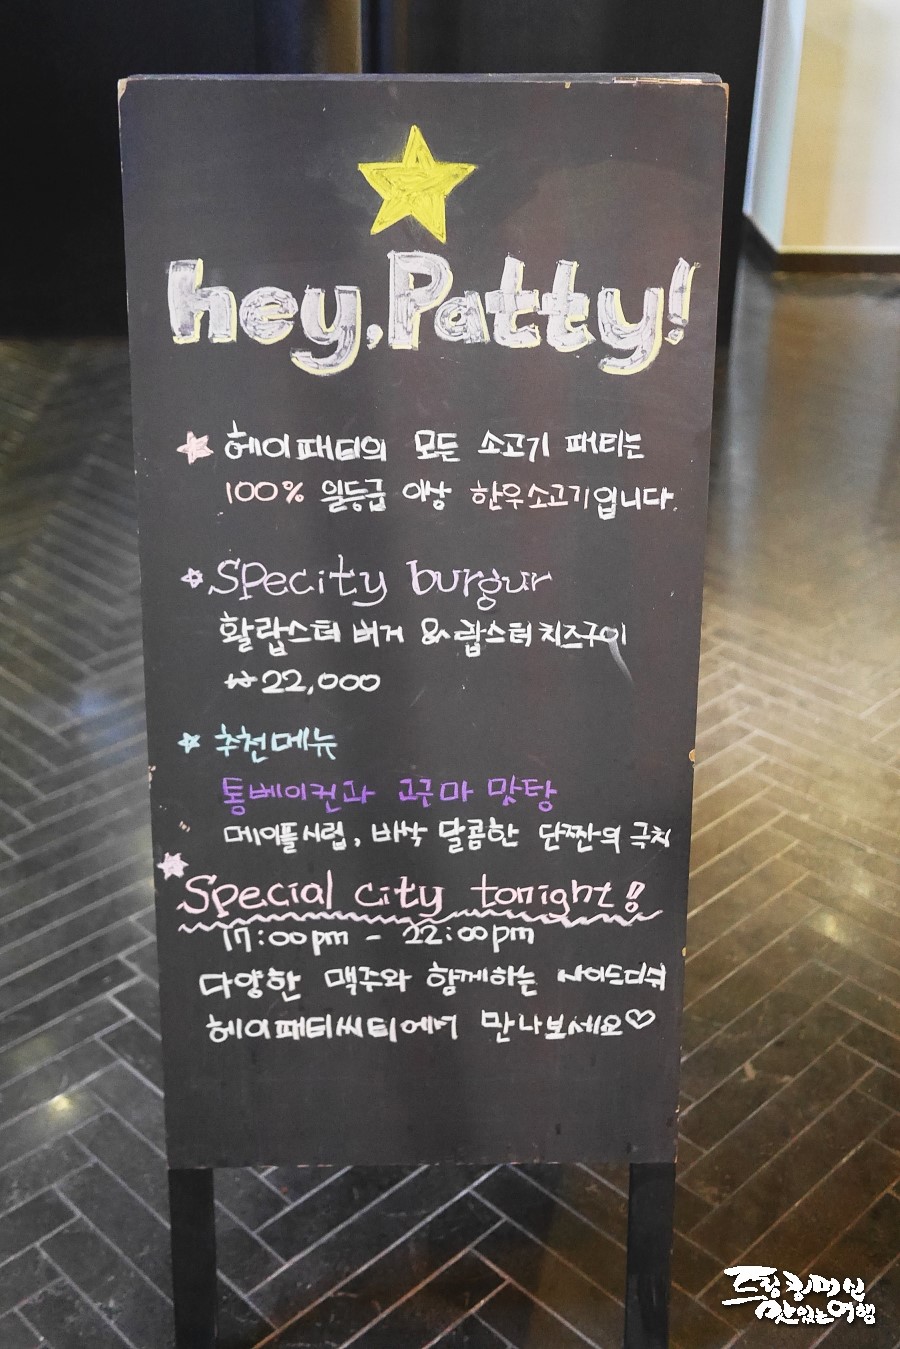 hey, Patty!
헤이패티의 모든 소고기 패티는
100% 일등급 이상 한우소고기입니다.
Specity burgur
활랍스터 버거 & 랍스터 치즈구이
₩22,000
추천메뉴
통베이컨과 고구마 맛탕
메이플시럽, 바싹 달콤한 단짠의 극치
Special city tonight!!
17:00pm - 22:00pm
다양한 맥주와 함께하는 사이드디쉬
헤이패티씨티에서 만나보세요♡
맛있는여행